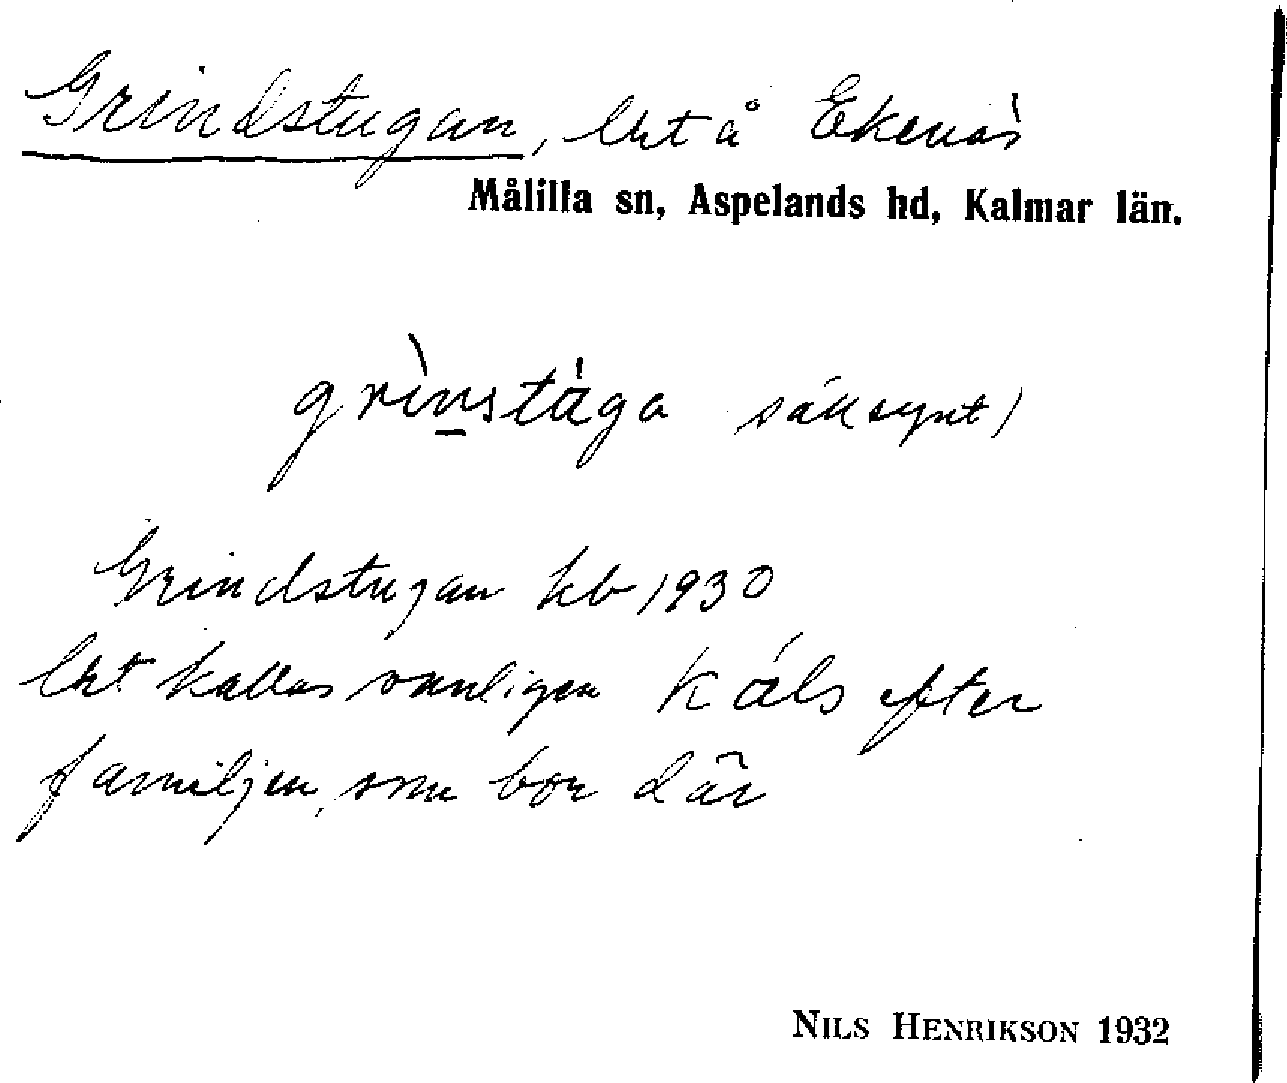 Grindstugan, lht å Ekenäs
Målilla sn, Aspelands hd, Kalmar län.
grìnstäga sällsynt)
Grindstugan kb 1930
lht kallas vanligen Káls efter
familjen, som bor där
NILS HENRIKSON 1932